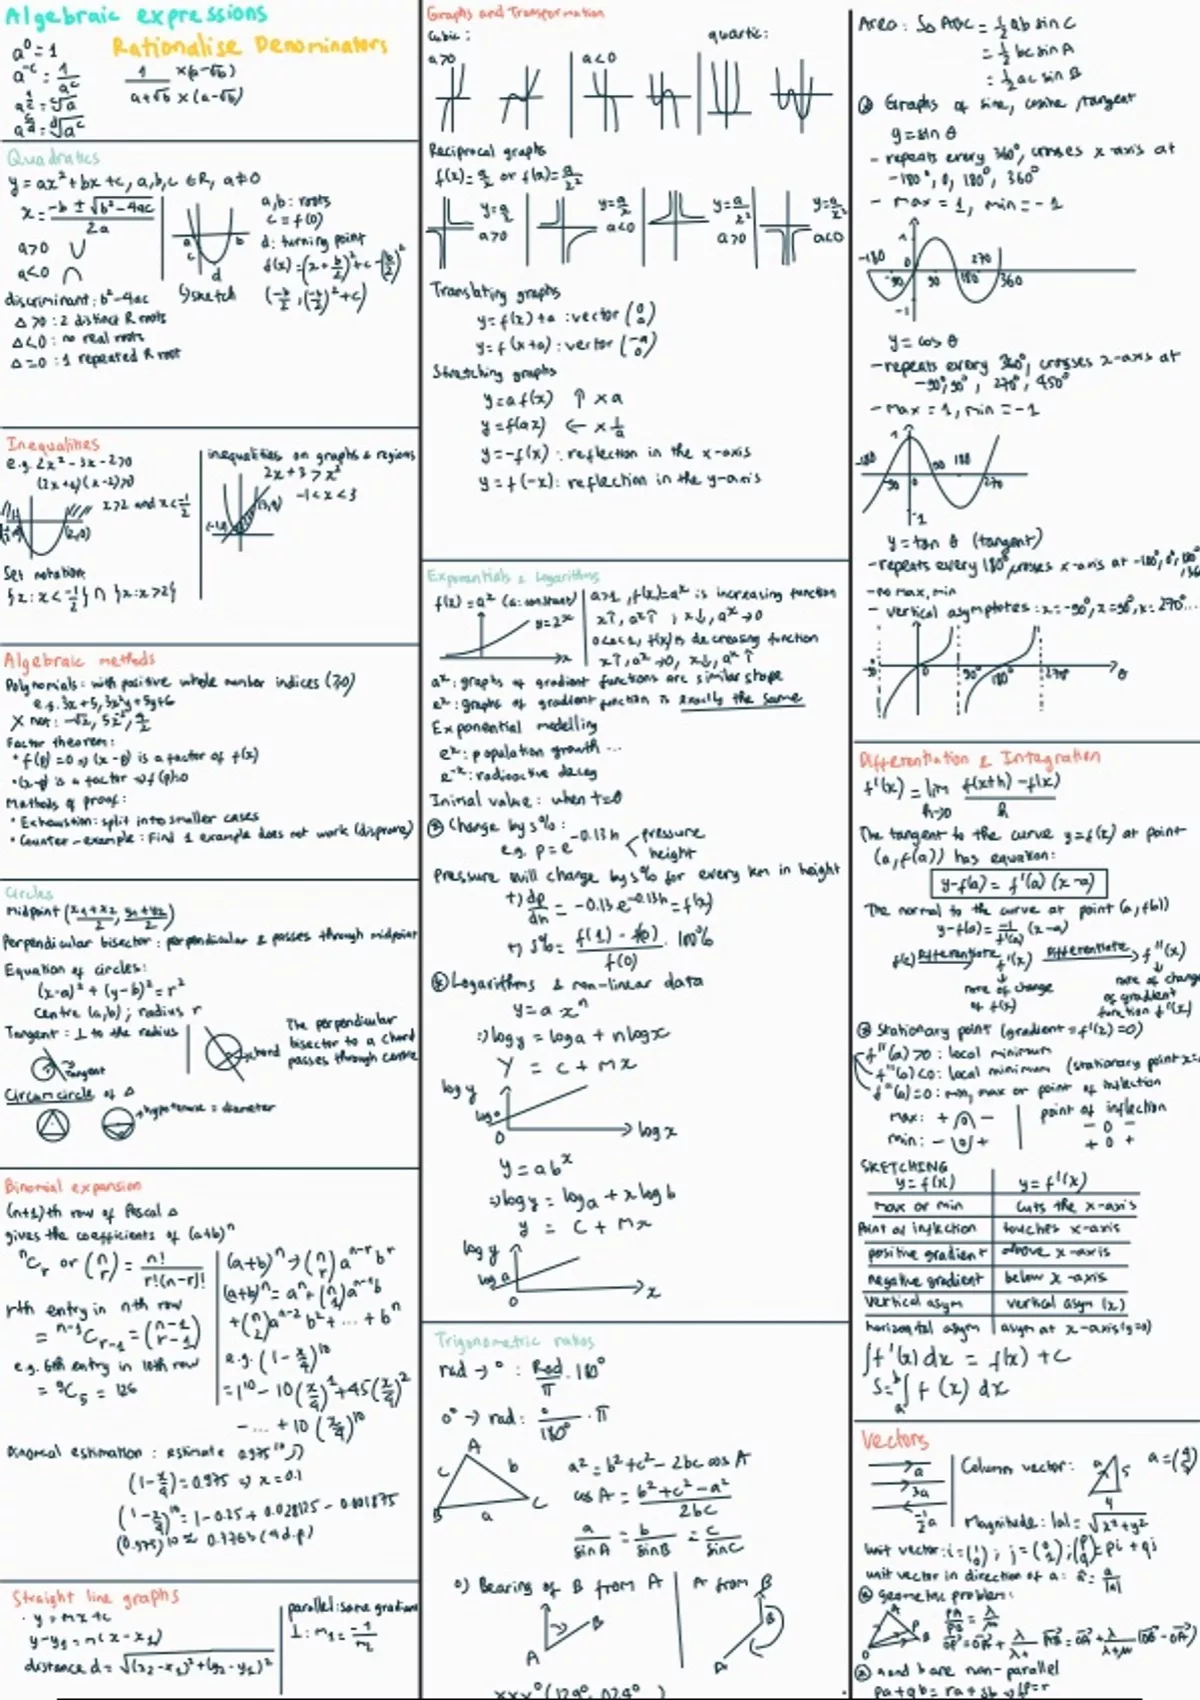 Algebraic expressions
a⁰ = 1
a⁻ᶜ = 1/aᶜ
Rationalise Denominators
1/(a+√b) ×(a-√b) ×(a-√b)
Quadratics
y = ax² + bx + c, a,b,c ∈ R, a≠0
x = (-b ± √(b²-4ac))/2a
a>0
a<0
a,b : roots
c = f(0)
d : turning point
↳ sketch
discriminant : b²-4ac
Δ>0 : 2 distinct R roots
Δ<0 : no real roots
Δ=0 : 1 repeated R root
Inequalities
e.g. 2x² - 3x - 2>0
x>2 and x<-1/2
(2,0)
Set notation
{x : x < -1/2} ∩ {x : x>2}
inequalities on graphs & regions
2x + 3 > x²
-1 < x < 3
Algebraic methods
Polynomials : with positive whole number indices (≥0)
e.g. 3x + 5, 3x²y + 5y + 6
Factor theorem :
• f(p) = 0 ⇒ (x-p) is a factor of f(x)
• (x-p) is a factor ⇒ f(p)=0
Methods of proof :
• Exhaustion : split into smaller cases
• Counter-example : Find 1 example does not work (disprove)
Circles
Midpoint (x₁+x₂/2, y₁+y₂/2)
Perpendicular bisector : perpendicular & passes through midpoint
Equation of circles :
(x-a)² + (y-b)² = r²
Centre (a,b) ; radius r
Tangent : ⊥ to the radius
Tangent
chord
The perpendicular
bisector to a chord
passes through centre
Circumcircle of Δ
hypotenuse = diameter
Binomial expansion
(n+1)th row of Pascal Δ
gives the coefficients of (a+b)ⁿ
ⁿCr or (n r) = n!/r!(n-r)!
rth entry in nth row
= ⁿ⁻¹Cr₋₁ = (n-1 r-1)
e.g. 6th entry in 10th row
= ⁹C₅ = 126
(a+b)ⁿ → (n r) aⁿ⁻ʳ bʳ
(a+b)ⁿ = aⁿ + (n 1) aⁿ⁻¹b
+ (n 2) aⁿ⁻² b² + ... + bⁿ
e.g. (1 - x/4)¹⁰
= 1¹⁰ - 10(x/4)¹ + 45(x/4)²
- ... + 10 (x/4)¹⁰
Binomial estimation : estimate 0.975¹⁰
(1 - x/4) = 0.975 ⇒ x = 0.1
(1 - x/4)¹⁰ = 1 - 0.25 + 0.028125 - 0.001875
(0.975)¹⁰ ≈ 0.7763 (4 d.p)
Straight line graphs
• y = mx + c
y - y₁ = m(x - x₁)
distance d = √((x₂-x₁)² + (y₂-y₁)²)
parallel : same gradient
⊥ : m₁ = -1/m₂
Graphs and Transformation
Cubic :
a>0
a<0
quartic :
Reciprocal graphs
f(x) = a/x or f(x) = a/x²
y = a/x
a>0
y = a/x
a<0
y = a/x²
a>0
y = a/x²
a<0
Translating graphs
y = f(x) + a : vector (0 a)
y = f(x+a) : vector (-a 0)
Stretching graphs
y = a f(x) ↑ × a
y = f(ax) ← × 1/a
y = -f(x) : reflection in the x-axis
y = f(-x) : reflection in the y-axis
Exponentials & Logarithms
f(x) = aˣ (a : constant)
y = 2ˣ
x
a>1, f(x) = aˣ is increasing function
x↑, aˣ↑ ; x↓, aˣ→0
0<a<1, f(x) is decreasing function
x↑, aˣ→0, x↓, aˣ↑
aˣ : graphs of gradient functions are similar shape
eˣ : graphs of gradient function is exactly the same
Exponential modelling
eˣ : population growth ...
e⁻ˣ : radioactive decay
Initial value : when t=0
Change by s% :
e.g. p = e^(-0.13h)
pressure
height
Pressure will change by s% for every km in height
+) dp/dh = -0.13 e^(-0.13h) = f'(x)
+) s% = (f(1) - f(0))/f(0) . 100%
Logarithms & non-linear data
y = a xⁿ
⇒ log y = log a + n log x
Y = c + mx
log y
log a
0
log x
y = abˣ
⇒ log y = log a + x log b
y = c + mx
log y
log a
0
x
Trigonometric ratios
rad → ° : Rad/π . 180°
0° → rad : °/180° . π
A
c
b
B
a
C
a² = b² + c² - 2bc cos A
cos A = (b² + c² - a²)/2bc
a/sin A = b/sin B = c/sin C
Bearing of B from A
A from B
A
B
B
A
Area : S△ABC = 1/2 ab sin C
= 1/2 bc sin A
= 1/2 ac sin B
Graphs of sine, cosine, tangent
y = sin θ
- repeats every 360°, crosses x-axis at
-180°, 0, 180°, 360°
- max = 1, min = -1
-180
-90
0
1
-1
90
180
270
360
y = cos θ
- repeats every 360°, crosses x-axis at
-90°, 90°, 270°, 450°
- max = 1, min = -1
-180
-90
0
1
-1
90
180
270
y = tan θ (tangent)
- repeats every 180°, crosses x-axis at -180°, 0°, 180°
- no max, min
- vertical asymptotes : x = -90°, x = 90°, x = 270° ...
-90°
0
90°
180°
270
θ
Differentiation & Integration
f'(x) = lim h→0 (f(x+h) - f(x))/h
The tangent to the curve y = f(x) at point
(a, f(a)) has equation :
y - f(a) = f'(a) (x-a)
The normal to the curve at point (a, f(a))
y - f(a) = -1/f'(a) (x-a)
f(x) Differentiate f'(x) Differentiate f''(x)
rate of change
of f(x)
rate of change
of gradient
function f'(x)
Stationary point (gradient = f'(x) = 0)
f''(a) > 0 : local minimum
f''(a) < 0 : local minimum (stationary point x=
f''(a) = 0 : min, max or point of inflection
max : + 0 -
min : - 0 +
point of inflection
- 0 -
+ 0 +
SKETCHING
y = f(x) y = f'(x)
max or min cuts the x-axis
Point of inflection touches x-axis
positive gradient above x-axis
negative gradient below x-axis
vertical asym vertical asym (x)
horizontal asym asym at x-axis (y=0)
∫f'(x) dx = f(x) + c
S = ∫ₐᵇ f(x) dx
Vectors
a
3a
-1/2 a
Column vector :
a
5
4
Magnitude : |a| = √(x²+y²)
Unit vector : i = (1 0) ; j = (0 1) ; (p q) = pi + qj
unit vector in direction of a : â = a/|a|
Geometric problem :
a and b are non-parallel
pa + qb = ra + sb ⇒ p=r